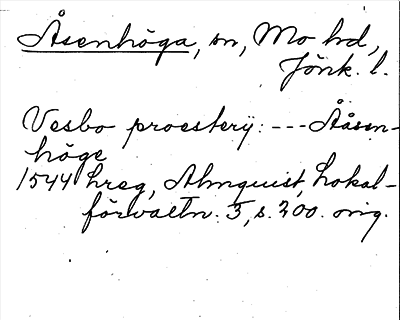 Åsenhöga, sn, Mo hd,
Jönk. l.
Vesbo proesterij: --- Ååsen-
höge
1544 hreg, Almquist, Lokal-
förvaltn. 3, s. 200. orig.